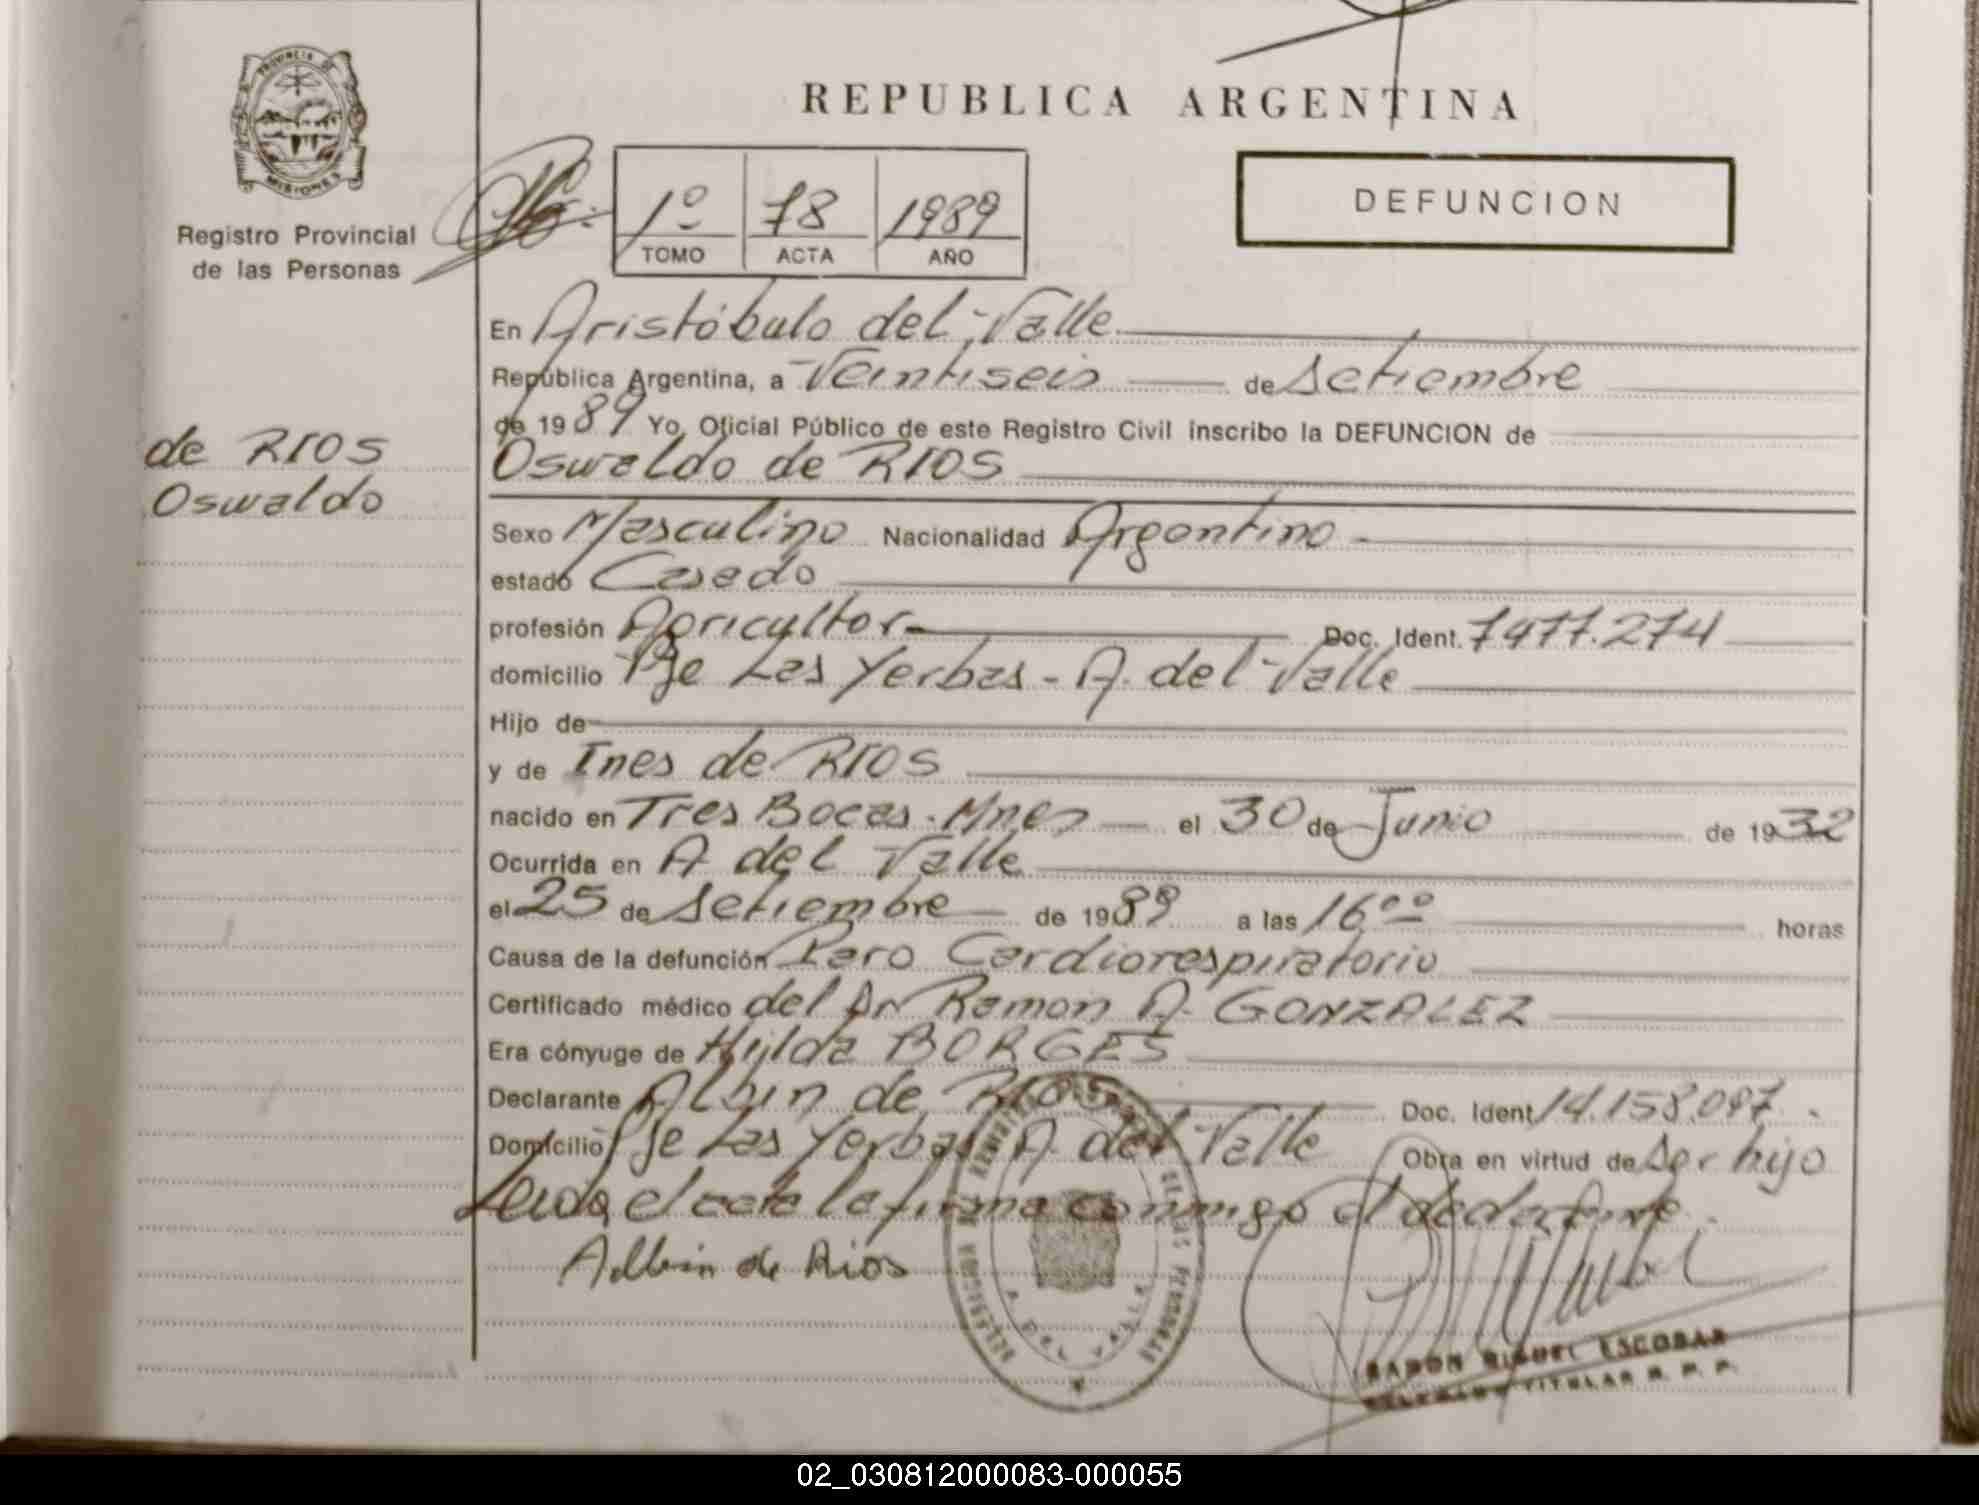 PROVINCIA DE
MISIONES
Registro Provincial
de las Personas
REPUBLICA ARGENTINA
1º 78 1989
TOMO ACTA AÑO
DEFUNCION
En Aristóbulo del Valle
República Argentina, a Veintiseis de Setiembre
de 1989 Yo, Oficial Público de este Registro Civil inscribo la DEFUNCION de
de RIOS
Oswaldo
Oswaldo de RIOS
Sexo Masculino Nacionalidad Argentino
estado Casado
profesión Agricultor Doc. Ident. 7477.274
domicilio Pje Las Yerbas - A. del Valle
Hijo de
y de Ines de RIOS
nacido en Tres Bocas - Mnes el 30 de Junio de 1932
Ocurrida en A. del Valle
el 25 de Setiembre de 1989 a las 16ºº horas
Causa de la defunción Paro Cardiorespiratorio
Certificado médico del Dr Ramon A. GONZALEZ
Era cónyuge de Hilda BORGES
Declarante Albin de RIOS Doc. Ident. 14.158.097
Domicilio Pje Las Yerbas A. del Valle Obra en virtud de Ser hijo
Leida el acta la firma conmigo el declarante.
Albin de Rios
A. DEL VALLE
RAMON MIGUEL ESCOBAR
DELEGADO TITULAR R. P. P.
02_030812000083-000055